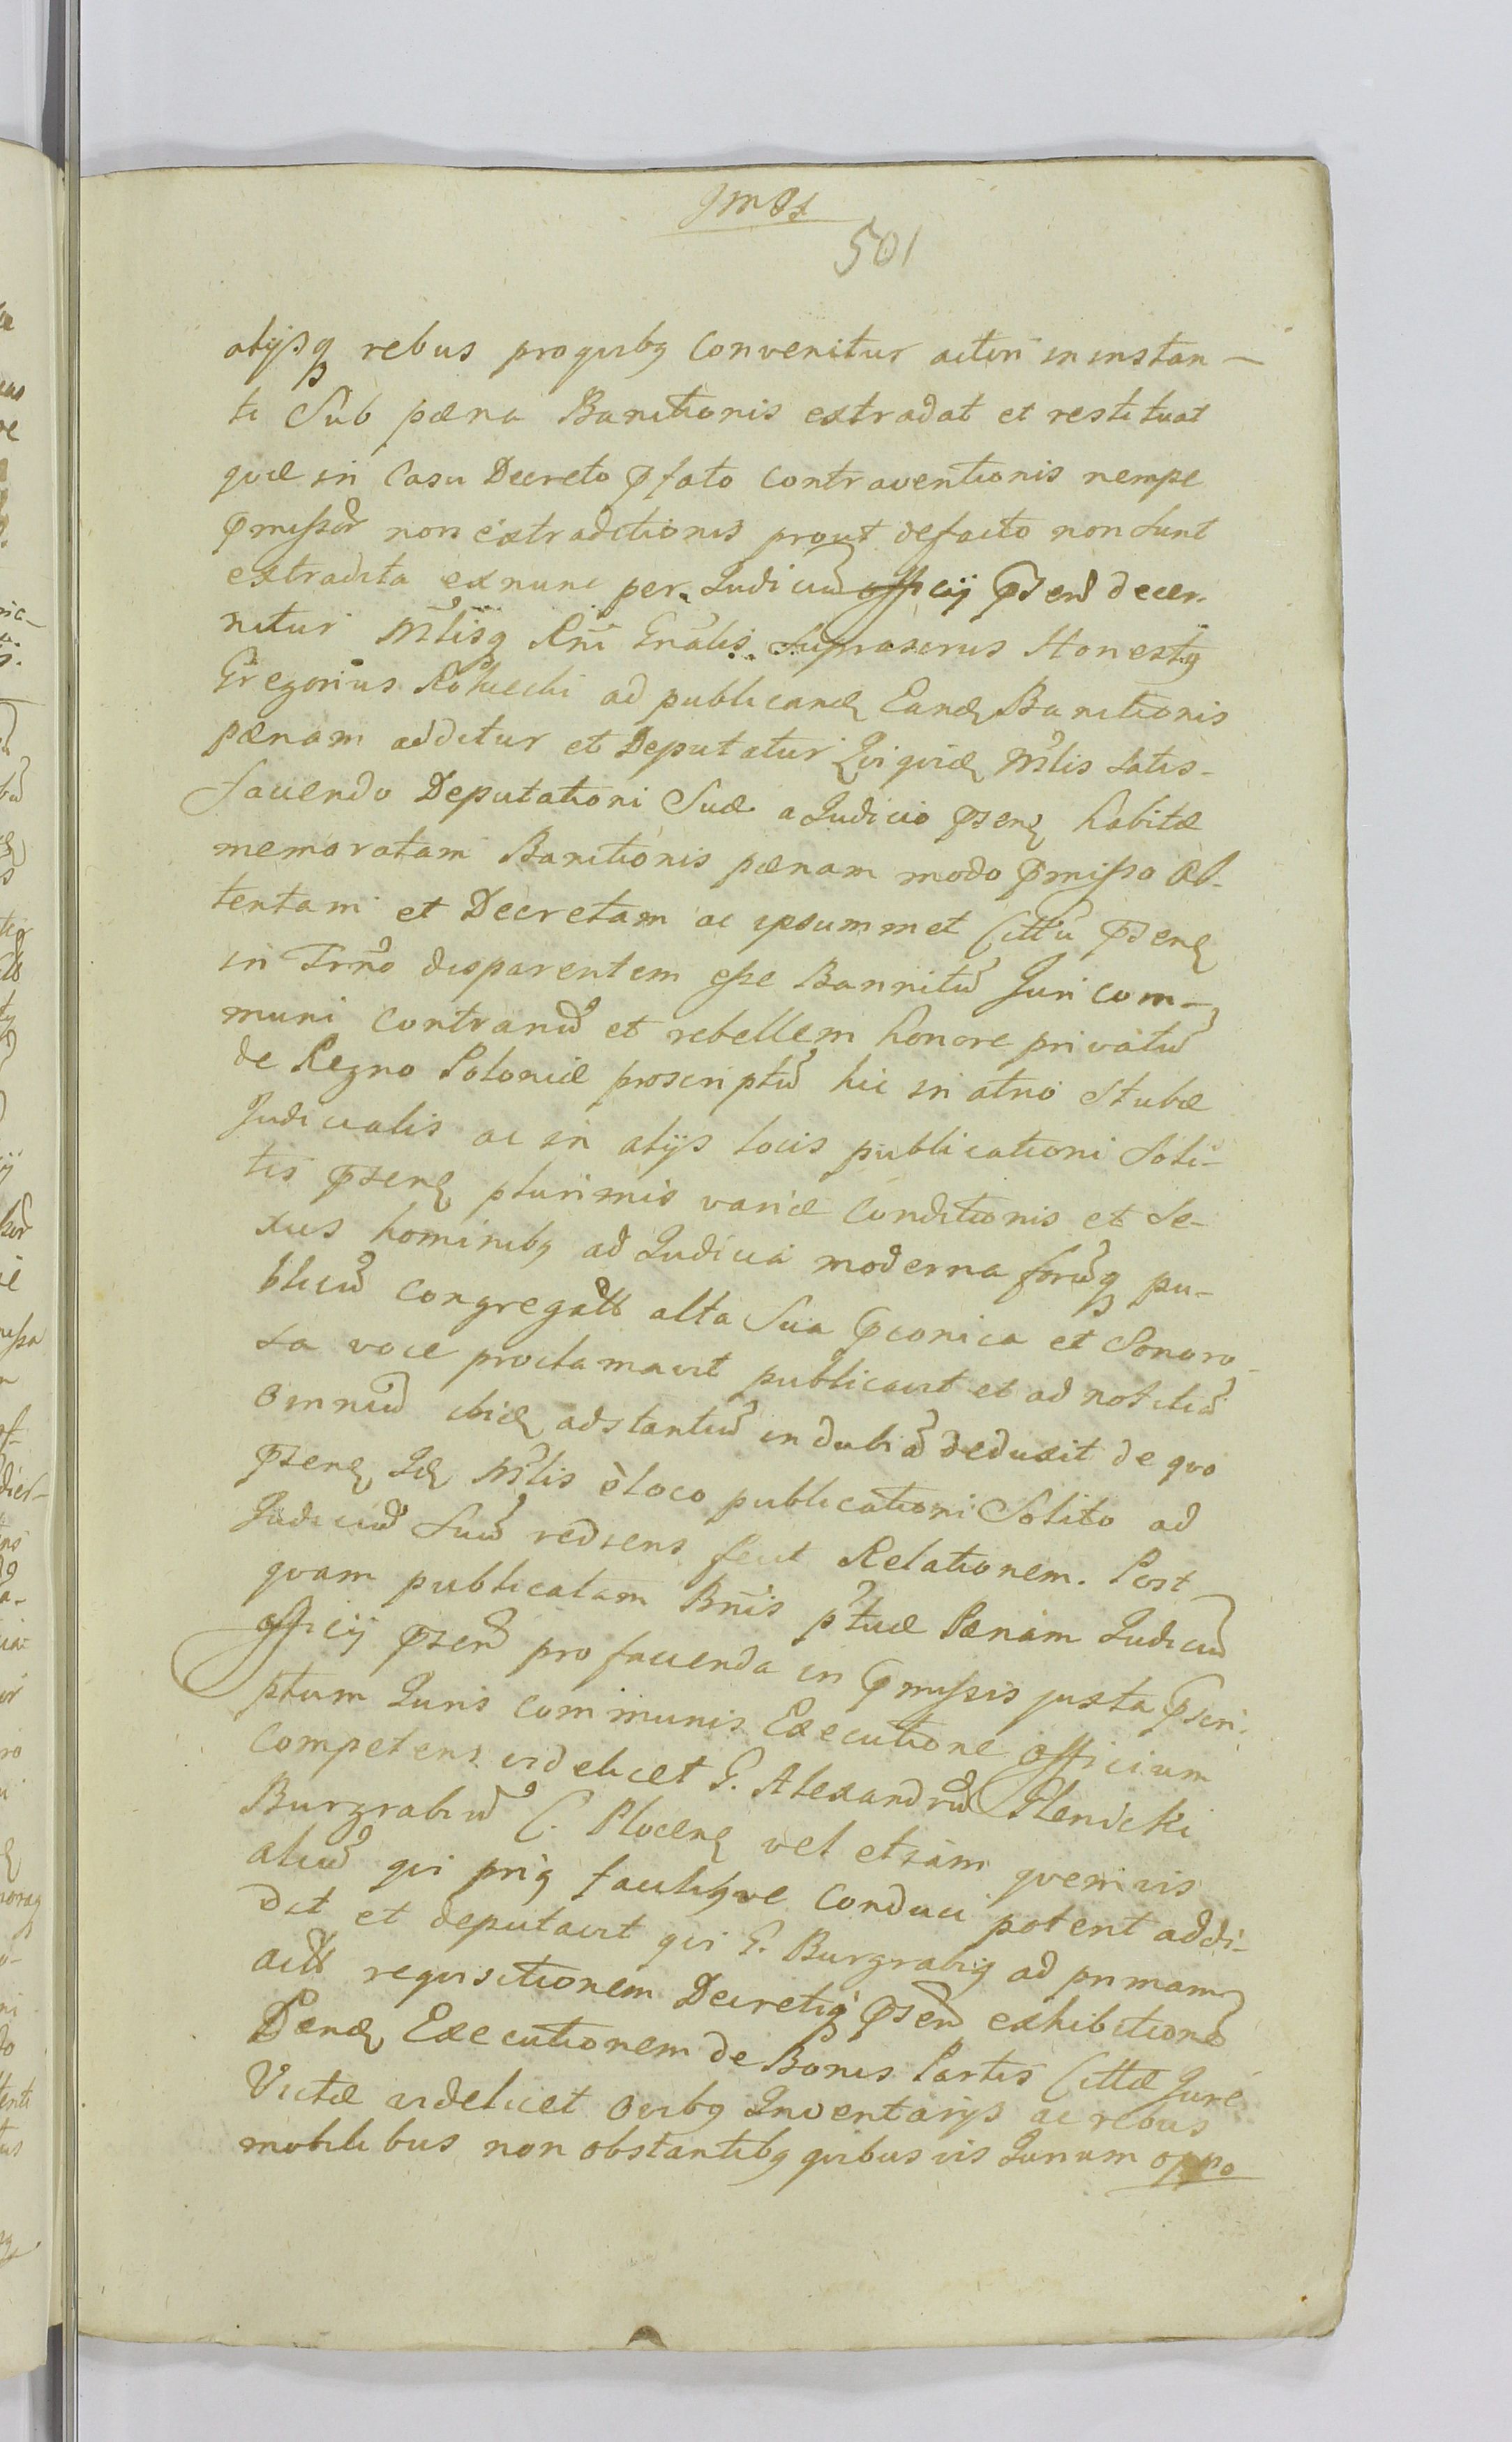 501
alijsq rebus proquibq Convenitur actori in instan-
ti Sub pæna Banitionis extradat et restituat
quæ in Casu Decreto pfato Contraventionis nempe
pmissor non extraditionis prout defacto non sunt
extradita ex nunc per Judiciu officij psen decer-
nitur Mlisq Rni Gnalis suprascrus Honestq
Gregorius ad publicand Eand Banitionis
pænam additur et Deputatur Qui quid Mlis satis-
faciendo Deputationi Suæ a Judicio psen habitæ
memoratam Banitionis pænam modo pmisso Ob-
tentam et Decretam ac ipsummet Cittu psen
in Trno disparentem esse Bannitu Juri com-
muni Contrariu et rebellem honore privatu
de Regno Poloniæ proscriptu hic in atrio Stubæ
Judicialis ac in alijs locis publicationi Soli-
tis psen plurimis variæ Conditionis et Se-
xus hominibq ad Judicia moderna foruq pu-
blicu Congregatt alta Sua pconica et Sonoro-
sa voce proclamavit publicavit et ad notitia
omniu ibid adstantiu indubia deduxit de quo
psen Id Mlis è loco publicationi Solito ad
Judiciu Suu rediens fecit Relationem. Post
quam publicatam Bnis ptuæ Pænam Judiciu
officij psen pro facienda in pmissis juxta pscri-
ptum Juris communis Executione officium
Competens videlicet G. Alexandru Slenicki
Burgrabiu C. Plocen vel etiam quemvis
aliu qui priq faciliqve Conduci poterit addi-
dit et deputavit qui G. Burgrabiq ad primam
actt requisitionem Decretiq psen exhibitione
Pend Executionem de Bonis Partis Cittæ Jure
Victæ videlicet Ovibq Inventarijs ac rebus
mobilibus non obstantibq quibusvis Jurium oppo